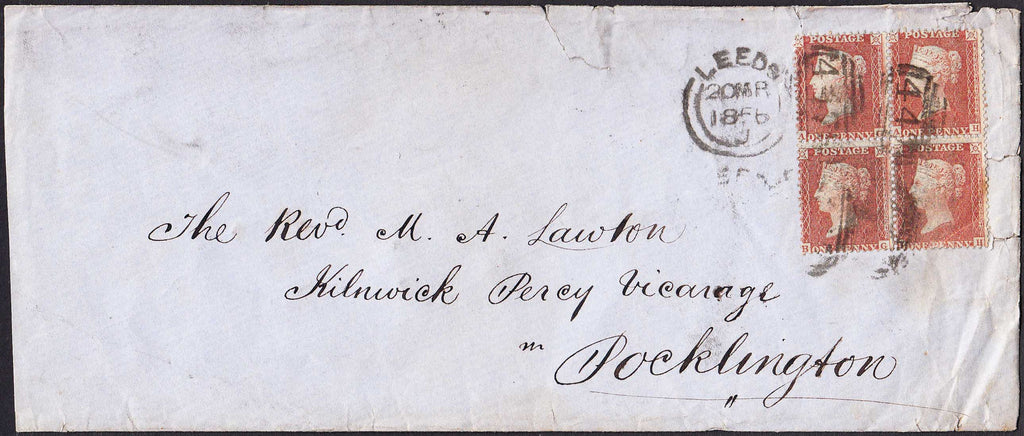 LEEDS
20MR
1856
POSTAGE POSTAGE
A ONE PENNY G A ONE PENNY H
POSTAGE POSTAGE
B ONE PENNY G B ONE PENNY H
The Revd. M. A. Lawton
Kilnwick Percy Vicarage
Pocklington